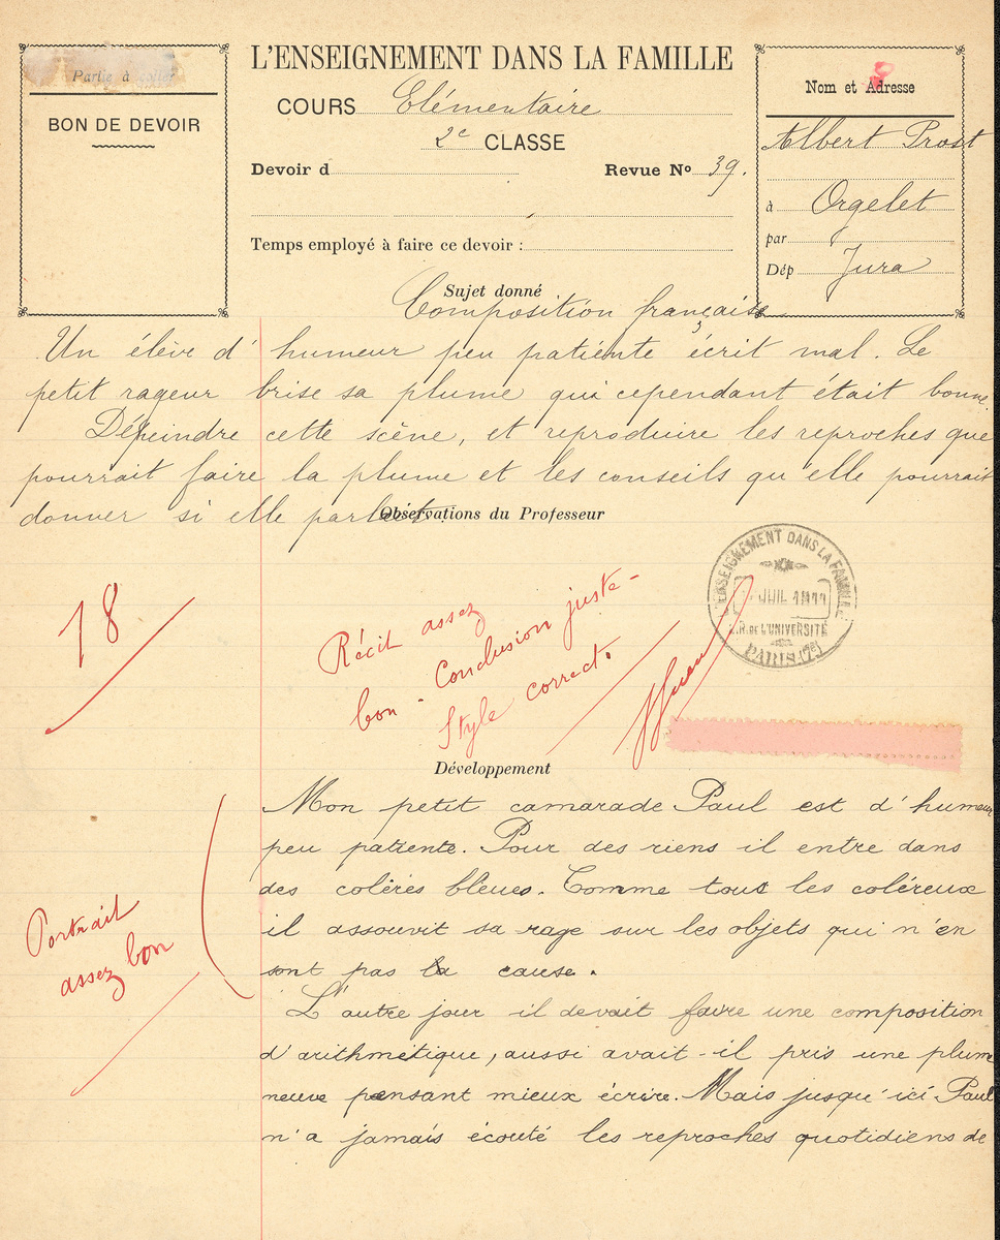 Partie à coller
BON DE DEVOIR
L'ENSEIGNEMENT DANS LA FAMILLE
COURS Elémentaire
2e CLASSE
Devoir d
Revue No 39.
Temps employé à faire ce devoir :
Nom et Adresse
Albert Prost
à Orgelet
par
Dép Jura
Sujet donné
Composition française
Un élève d'humeur peu patiente écrit mal. Le
petit rageur brise sa plume qui cependant était bonne.
Dépeindre cette scène, et reproduire les reproches que
pourrait faire la plume et les conseils qu'elle pourrait
donner si elle parlait.
Observations du Professeur
18
Récit assez
bon - Conclusion juste -
Style correct.
ENSEIGNEMENT DANS LA FAMILLE
JUIL 1911
R. DE L'UNIVERSITÉ
PARIS (7e)
Développement
Mon petit camarade Paul est d'humeur
peu patiente. Pour des riens il entre dans
des colères bleues. Comme tous les coléreux
il assouvit sa rage sur les objets qui n'en
sont pas la cause.
Portrait
assez bon
L'autre jour il devait faire une composition
d'arithmétique, aussi avait-il pris une plume
neuve pensant mieux écrire. Mais jusqu'ici Paul
n'a jamais écouté les reproches quotidiens de